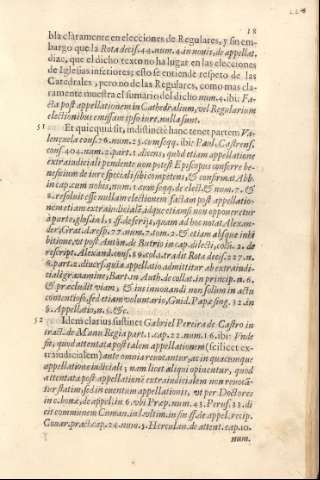 18
bla claramente en elecciones de Regulares, y sin em-
bargo que la Rota decis. 44. num. 4. in nouis, de appellat.
dize, que el dicho texto no ha lugar en las elecciones
de Iglesias inferiores; esto se entiende respeto de las
Catedrales, pero no de las Regulares, como mas cla-
ramente muestra el sumario del dicho num. 4. ibi; Fa-
cta post appellationem in Cathedralium, vel Regularium
electionibus emissam ipso iure nulla sunt.
51 Et quicquid sit, indistinctè hanc tenet partem Va-
lençuela cons. 76. num. 25. cum seqq. ibi: Paul. Castrens.
cons. 404. num. 2. part. 1. dicens, quòd etiam appellatione
extraiudiciali pendente non potest Episcopus conferre be-
neficium de iure speciali sibi competens, & confirmat Abb.
in cap. cum nobis, num. 1. cum seqq. de elect. & num. 7. &
8. resoluit esse nullam electionem factam post appellatio-
nem etiam extraiudicialē, idque etiamsi non opponeretur
à parte, glos. in l. 1. ff. de feriis, quam ad hoc notat Alexan-
der, Grat. dict. resp. 27. num. 7. tom. 2. & etiam absque inhi
bitione, vt post Antòn. de Butrio in cap. dilecti, col. 2. de
rescript. Alexand. cons. 89. col. 2. tradit Rota decis. 227. n.
6. part. 2. diuers. quia appellatio admittitur ab extraiudi-
ciali grauamine; Bart. in Auth. de collat. in princip. n. 6.
& præcludit viam, & ius innouandi non solum in actu
contentioso, sed etiam voluntario, Guid. Pap. sing. 32. in
§. Appellatio, n. 5. &c.
52 Idem clarius sustinet Gabriel Pereira de Castro in
tract. de Manu Regia part. 1. cap. 22. num. 16. ibi: Vnde
fit, quòd attentata post talem appellationem (scilicet ex-
traiudicialem) ante omnia reuocantur, ac in quacumque
appellatione iudiciali; nam licet aliqui opinentur, quòd
attentata post appellationē extraiudicialem non reuocā-
tur statim, sed in euentum appellationis, vt per Doctores
in c. bonæ, de appel. in 6. vbi Præp. num. 43. Perus. 33. di
cit communem Cuman. in l. vltim. in fin. ff. de appel. recip.
Couar. pract. cap. 24. num. 5. Herculan. de attent. cap. 10.
num.